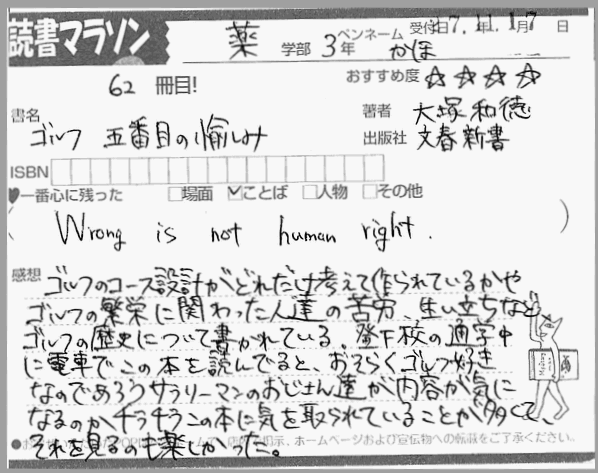 読書マラソン
薬 学部 3年 ペンネーム かほ 受付日 7年 1月 17日
62 冊目!
おすすめ度 ☆☆☆☆
書名 ゴルフ 五番目の愉しみ
著者 大塚和徳
出版社 文春新書
ISBN
♥一番心に残った □場面 ☑ことば □人物 □その他
( Wrong is not human right. )
感想 ゴルフのコース設計がどれだけ考えて作られているかや
ゴルフの繁栄に関わった人達の苦労、生い立ちなど
ゴルフの歴史について書かれている。登下校の通学中
に電車でこの本を読んでると、おそらくゴルフ好き
なのであろうサラリーマンのおじさん達が内容が気に
なるのかチラチラこの本に気を取られていることが多くて、
それを見るのも楽しかった。
ホームページおよび宣伝物への転載をご了承ください。